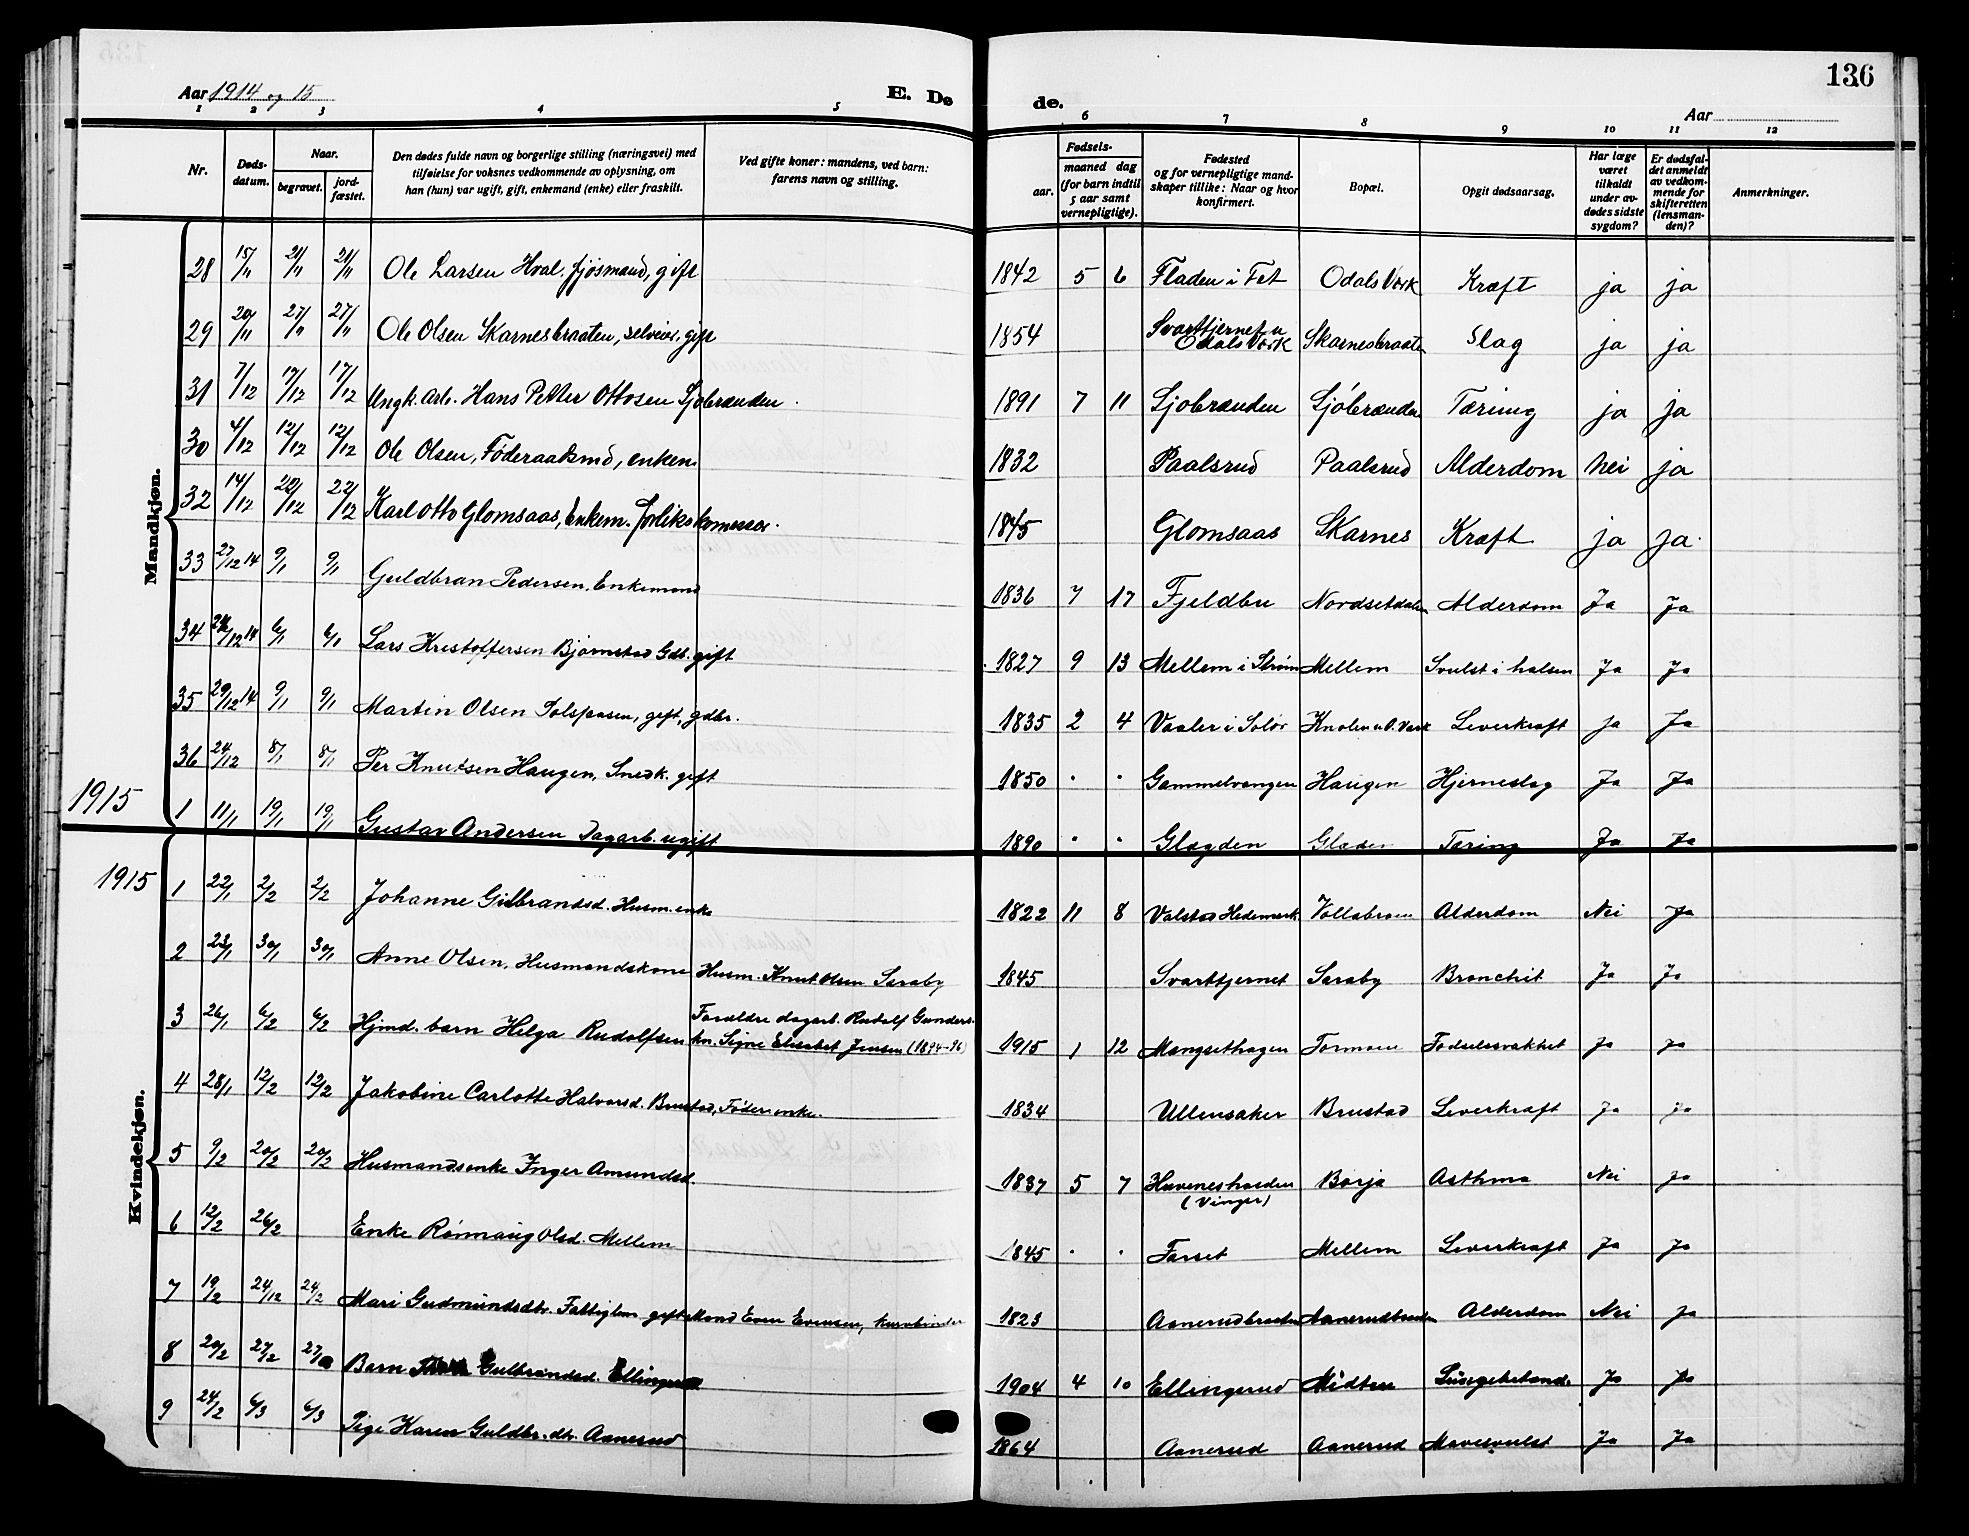 136
Aar 1914 og 15
E. Dø
de.
Aar
1 2 3 4 5 6 7 8 9 10 11 12
Nr.
Døds-
datum.
Naar.
begravet.
jord-
fæstet.
Den dødes fulde navn og borgerlige stilling (næringsvei) med
tilføielse for voksnes vedkommende av oplysning, om
han (hun) var ugift, gift, enkemand (enke) eller fraskilt.
Ved gifte koner: mandens, ved barn:
farens navn og stilling.
Fødsels-
aar.
maaned dag
(for barn indtil
5 aar samt
vernepligtige).
Fødested
og for vernepligtige mand-
skaper tillike: Naar og hvor
konfirmert.
Bopæl.
Opgit dødsaarsag.
Har læge
været
tilkaldt
under av-
dødes sidste
sygdom?
Er dødsfal-
det anmeldt
av vedkom-
mende for
skifteretten
(lensman-
den)?
Anmerkninger.
Mandkjøn.
28 15/11 21/11 21/11 Ole Larsen Hval. fjøsmand, gift 1842 5 6 Fladen i Fet Odals Værk Kræft ja ja
29 20/11 27/11 27/11 Ole Olsen Skarnesbraaten, selveier, gift 1854 Svarttjernet u Odals Værk Skarnesbraaten Slag ja ja
31 7/12 17/12 17/12 Ungk. Arb. Hans Petter Ottosen Sjøbrænden. 1891 7 11 Sjøbrænden Sjøbrænden Tæring ja ja
30 4/12 12/12 12/12 Ole Olsen, Føderaadsmd, enkem. 1832 Paalsrud Paalsrud Alderdom Nei ja
32 14/12 22/12 22/12 Karl Otto Glomsaas, Enkem. forlikskomissær. 1845 Glomsaas Skarnes Kræft ja ja.
33 27/12 14 9/1 9/1 Guldbran Pedersen, Enkemand 1836 7 17 Fjeldbu Nordsetdalen Alderdom Ja Ja
34 /12 14 6/1 6/1 Lars Kristoffersen Bjørnstad Gdb. gift 1827 9 13 Mellem i Strøm Mellem Svulst i halsen Ja Ja
35 29/12 14 9/1 9/1 Martin Olsen Solspasen, gift, gdbr. 1835 2 4 Vaaler i Solør Knolen u O. Værk Leverkræft Ja Ja
36 24/12 8/1 8/1 Per Knutsen Haugen, Snedk. gift 1850 " " Gammelvangen Haugen Hjerneslag Ja Ja
1915
1 11/1 19/1 19/1 Gustav Andersen Dagarb. ugift 1890 " " Glægden Glæden Tæring Ja Ja
Kvindekjøn.
1915
1 22/1 2/2 2/2 Johanne Gulbrandsd. Husm. enke 1822 11 8 Valstad Hedemark Vollabraaten Alderdom Nei Ja
2 23/1 30/1 30/1 Anne Olsen, Husmandskone Husm. Knut Olsen Saraby 1845 Svarttjernet Saraby Bronchit Ja Ja
3 26/1 6/2 6/2 Hjmd. barn Helga Rudolfsen Forældre dagarb. Rudolf Gunders.
kn. Signe Elisabet Jensen (1894-96) 1915 1 12 Mangsethagen Tormoen Fødselssvakhet Ja Ja
4 28/1 12/2 12/2 Jakobine Carlotte Halvorsd. Brustad, Føder. enke. 1834 Ullensaker Brustad Leverkræft Ja Ja
5 9/2 20/2 20/2 Husmandsenke Inger Amundsd. 1837 5 7 (Vinger) Borja Asthma Nei Ja
6 12/2 26/2 Enke Rønnaug Olsd. Mellem 1845 " " Farset Mellem Leverkræft Ja Ja
7 19/2 24/12 24/2 Mari Gudmundsdtr. Fattiglem gift Mand Even Evensen, kurvbinder 1823 Aanerudbraaten Aanerudbraaten Alderdom Nei Ja
8 20/2 27/2 27/ Barn Gulbrandsd. Ellingerud 1904 4 10 Ellingerud Midtsu Ja Ja
9 24/2 6/3 6/3 Pige Karen Guldbr. dtr. Aanerud 1864 Aanerud Aanerud Mavesvulst Ja Ja